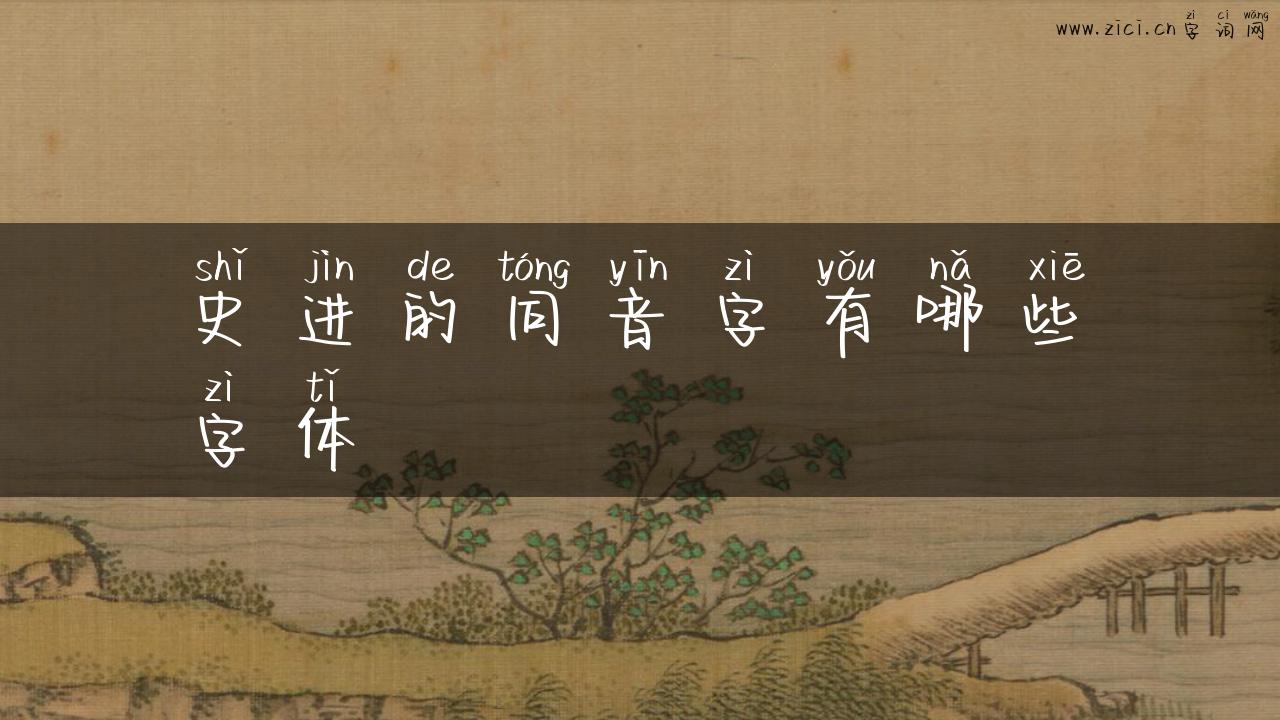 zì cí wǎng
www.zici.cn 字词网
shǐ jìn de tóng yīn zì yǒu nǎ xiē
史进的同音字有哪些
zì tǐ
字体